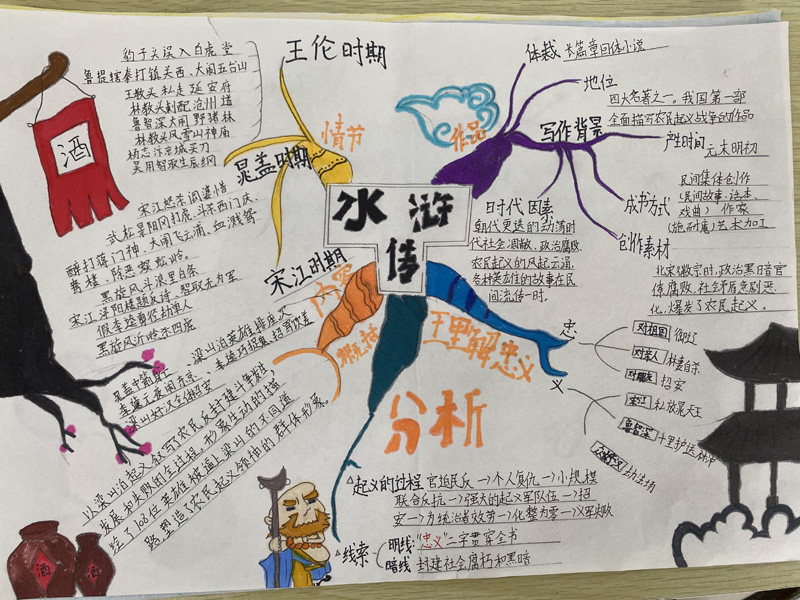 水浒传
王伦时期
豹子头误入白虎堂
鲁提辖拳打镇关西、大闹五台山
王教头私走延安府
林教头刺配沧州道
鲁智深大闹野猪林
林教头风雪山神庙
杨志汴京城卖刀
吴用智取生辰纲
晁盖时期
情节
宋江怒杀阎婆惜
武松景阳冈打虎、斗杀西门庆、
醉打蒋门神、大闹飞云浦、血溅鸳
鸯楼、除恶蜈蚣岭。
黑旋风斗浪里白条
宋江浔阳楼题反诗、智取无为军
假李逵剪径劫单人
黑旋风沂岭杀四虎
宋江时期
梁山泊英雄排座次
内容
以梁山泊起义叙写了农民反封建斗争发生,
发展和失败的全过程,形象生动的描
绘了108位英雄被逼上梁山的不同道
路塑造了农民起义领袖的群体形象。
作品
体裁 长篇章回体小说
地位
四大名著之一。我国第一部
全面描写农民起义战争的作品
写作背景
产生时间 元末明初
时代因素
朝代更迭的动荡时
代社会凋敝、政治腐败
农民起义的风起云涌,
各种英雄的故事在民
间流传一时。
成书方式
民间集体创作
(民间故事、话本、
戏曲) 作家
(施耐庵)艺术加工
创作素材
北宋徽宗时,政治黑暗官
僚腐败,社会矛盾急剧恶
化,爆发了农民起义。
理解忠义
忠
对祖国 御辽
招安
义
宋江 私放晁天王
鲁智深 千里护送林冲
劫法场
分析
起义的过程 官逼民反→个人复仇→小规模
联合反抗→强大的起义军队伍→招
安→为统治者效劳→化整为零→义军失败
线索
明线:“忠义”二字贯穿全书
暗线 封建社会腐朽和黑暗
酒
酒
酒